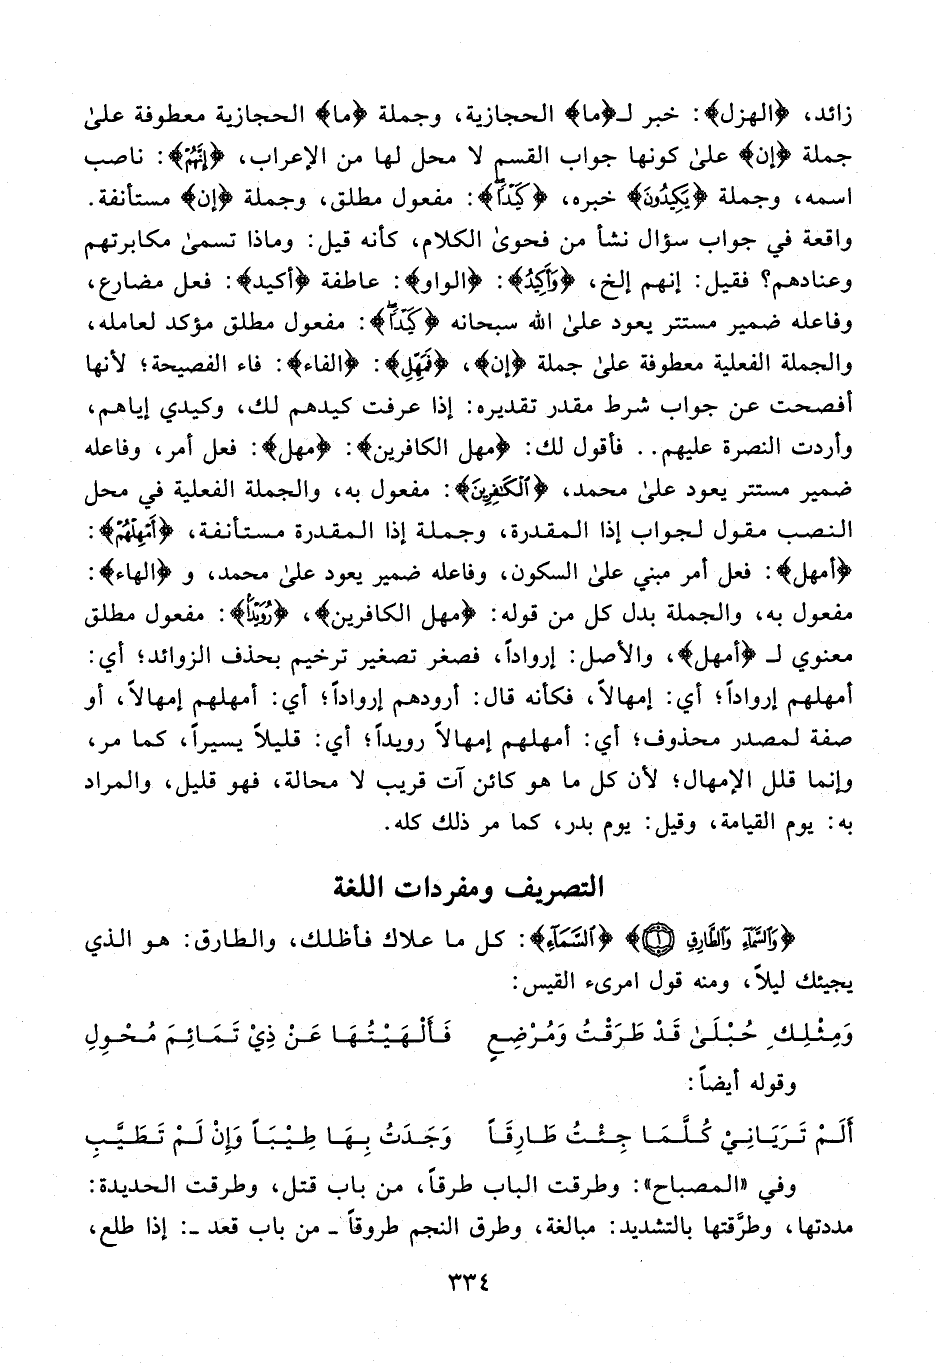 زائد، ﴿الهزل﴾: خبر لـ﴿ما﴾ الحجازية، وجملة ﴿ما﴾ الحجازية معطوفة علىٰ
جملة ﴿إن﴾ علىٰ كونها جواب القسم لا محل لها من الإعراب، ﴿إِنَّهُمْ﴾: ناصب
اسمه، وجملة ﴿يَكِيدُونَ﴾ خبره، ﴿كَيْدًا﴾: مفعول مطلق، وجملة ﴿إن﴾ مستأنفة.
واقعة في جواب سؤال نشأ من فحوىٰ الكلام، كأنه قيل: وماذا تسمىٰ مكابرتهم
وعنادهم؟ فقيل: إنهم إلخ، ﴿وَأَكِيدُ﴾: ﴿الواو﴾: عاطفة ﴿أكيد﴾: فعل مضارع،
وفاعله ضمير مستتر يعود علىٰ الله سبحانه ﴿كَيْدًا﴾: مفعول مطلق مؤكد لعامله،
والجملة الفعلية معطوفة علىٰ جملة ﴿إن﴾، ﴿فَمَهِّلِ﴾: ﴿الفاء﴾: فاء الفصيحة؛ لأنها
أفصحت عن جواب شرط مقدر تقديره: إذا عرفت كيدهم لك، وكيدي إياهم،
وأردت النصرة عليهم.. فأقول لك: ﴿مهل الكافرين﴾: ﴿مهل﴾: فعل أمر، وفاعله
ضمير مستتر يعود علىٰ محمد، ﴿ٱلْكَٰفِرِينَ﴾: مفعول به، والجملة الفعلية في محل
النصب مقول لجواب إذا المقدرة، وجملة إذا المقدرة مستأنفة، ﴿أَمْهِلْهُمْ﴾:
﴿أمهل﴾: فعل أمر مبني علىٰ السكون، وفاعله ضمير يعود علىٰ محمد، و ﴿الهاء﴾:
مفعول به، والجملة بدل كل من قوله: ﴿مهل الكافرين﴾، ﴿رُوَيْدًا﴾: مفعول مطلق
معنوي لـ ﴿أمهل﴾، والأصل: إرواداً، فصغر تصغير ترخيم بحذف الزوائد؛ أي:
أمهلهم إرواداً؛ أي: إمهالاً، فكأنه قال: أرودهم إرواداً؛ أي: أمهلهم إمهالاً، أو
صفة لمصدر محذوف؛ أي: أمهلهم إمهالاً رويداً؛ أي: قليلاً يسيراً، كما مر،
وإنما قلل الإمهال؛ لأن كل ما هو كائن آت قريب لا محالة، فهو قليل، والمراد
به: يوم القيامة، وقيل: يوم بدر، كما مر ذلك كله.
التصريف ومفردات اللغة
﴿وَٱلسَّمَآءِ وَٱلطَّارِقِ ١﴾ ﴿ٱلسَّمَآءِ﴾: كل ما علاك فأظلك، والطارق: هو الذي
يجيئك ليلاً، ومنه قول امرىء القيس:
وَمِثْلِكِ حُبْلَىٰ قَدْ طَرَقْتُ وَمُرْضِعٍ فَأَلْهَيْتُهَا عَنْ ذِيْ تَمَائِمَ مُحْوِلِ
وقوله أيضاً:
أَلَمْ تَرَيَانِيْ كُلَّمَا جِئْتُ طَارِقَاً وَجَدَتُ بِهَا طِيْبَاً وَإِنْ لَمْ تَطَيَّبِ
وفي «المصباح»: وطرقت الباب طرقاً، من باب قتل، وطرقت الحديدة:
مددتها، وطرَّقتها بالتشديد: مبالغة، وطرق النجم طروقاً ـ من باب قعد ـ: إذا طلع،
٣٣٤